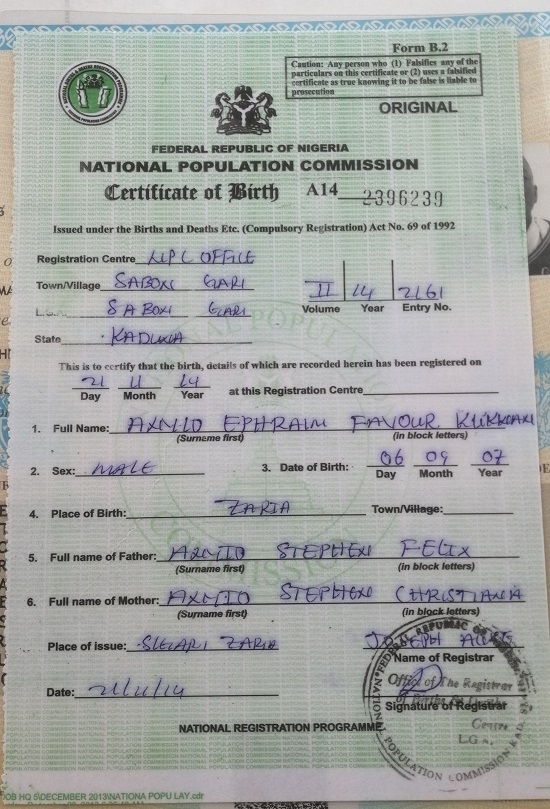 Form B.2
Caution: Any person who (1) Falsifies any of the
particulars on this certificate or (2) uses a falsified
certificate as true knowing it to be false is liable to
prosecution
ORIGINAL
FEDERAL REPUBLIC OF NIGERIA
NATIONAL POPULATION COMMISSION
Certificate of Birth A14 2396239
Issued under the Births and Deaths Etc. (Compulsory Registration) Act No. 69 of 1992
Registration Centre NPC OFFICE
Town/Village SABON GARI
SABON GARI
II 14 2161
Volume Year Entry No.
State KADUNA
This is to certify that the birth, details of which are recorded herein has been registered on
21 11 14
Day Month Year at this Registration Centre
1. Full Name: EPHRAIM FAVOUR
(Surname first) (in block letters)
2. Sex: MALE 3. Date of Birth: 06 09 07
Day Month Year
4. Place of Birth: ZARIA Town/Village:
5. Full name of Father: STEPHEN FELIX
(Surname first) (in block letters)
6. Full name of Mother: STEPHEN CHRISTIANA
(Surname first) (in block letters)
Place of issue: ZARIA JOSEPH
Name of Registrar
Office of The Registrar
Date: 21/11/14
Signature of Registrar
NATIONAL REGISTRATION PROGRAMME